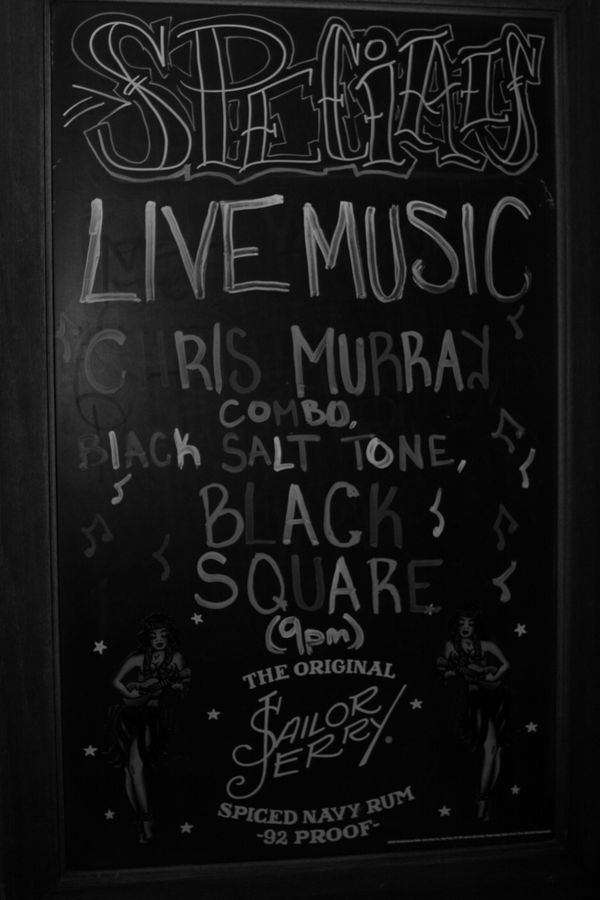 SPECIALS
LIVE MUSIC
CHRIS MURRAY
COMBO,
BLACK SALT TONE,
BLACK
SQUARE
(9pm)
THE ORIGINAL
SAILOR
JERRY
SPICED NAVY RUM
-92 PROOF-